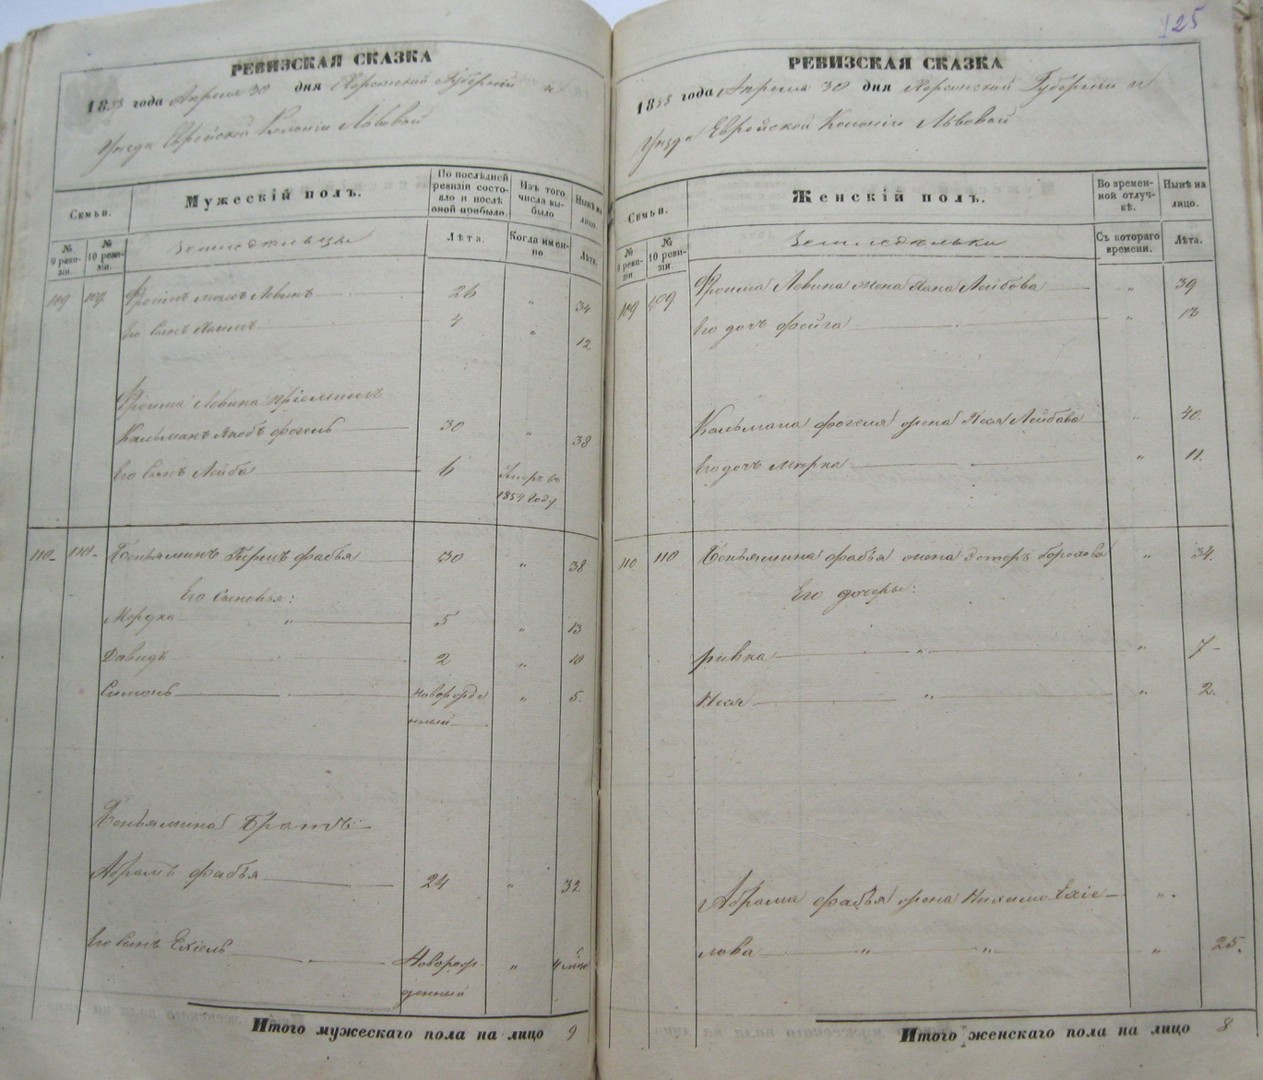 РЕВИЗСКАЯ СКАЗКА
1858 года Апреля 30 дня Херсонской Губерніи и
Уезда Еврейской Колоніи Львовой
Семьи.
Мужескій полъ.
По послѣдней ревизіи состояло и послѣ оной прибыло.
Изъ того числа выбыло
Нынѣ на лицо.
№ 9 ревизіи.
№ 10 ревизіи.
Земледѣльцы
Лѣта.
Когда именно
Лѣта.
109 109 Левинъ 26 „ 34
Его Сынъ 4 „ 12
Фроима Левина
Кальманъ фогель 30 „ 38
Его Сынъ Лейба 6 Умеръ въ
1854 году
110 110 Беньяминъ Гершъ 30 „ 38
Его Сыновья:
Мордка „ 5 „ 13
Давидъ 2 „ 10
Симонъ Новорожде „ 5.
нный
Беньямина Братъ
Абрамъ 24 „ 32
Его Сынъ Ехіель Новорож „
денный
Итого мужескаго пола на лицо 9
125
РЕВИЗСКАЯ СКАЗКА
1858 года Апреля 30 дня Херсонской Губерніи и
Уезда Еврейской Колоніи Львовой
Семьи.
Женскій полъ.
Во временной отлучкѣ.
Нынѣ на лицо.
№ 9 ревизіи
№ 10 ревизіи.
Земледѣльки
Съ котораго времени.
Лѣта.
109 109 Фроима Левина жена Лейбова „ 39
Его дочь Фейга „ 13
Кальмана фогеля жена Лейбова „ 40.
Его дочь Мирка „ 11.
110 110 Беньямина жена Эстеръ „ 34.
Его дочеры:
ривка „ „ 7
Неся „ „ 2.
Абрама жена Ехіе „
лова „ „ „ 25.
Итого женскаго пола на лицо 8